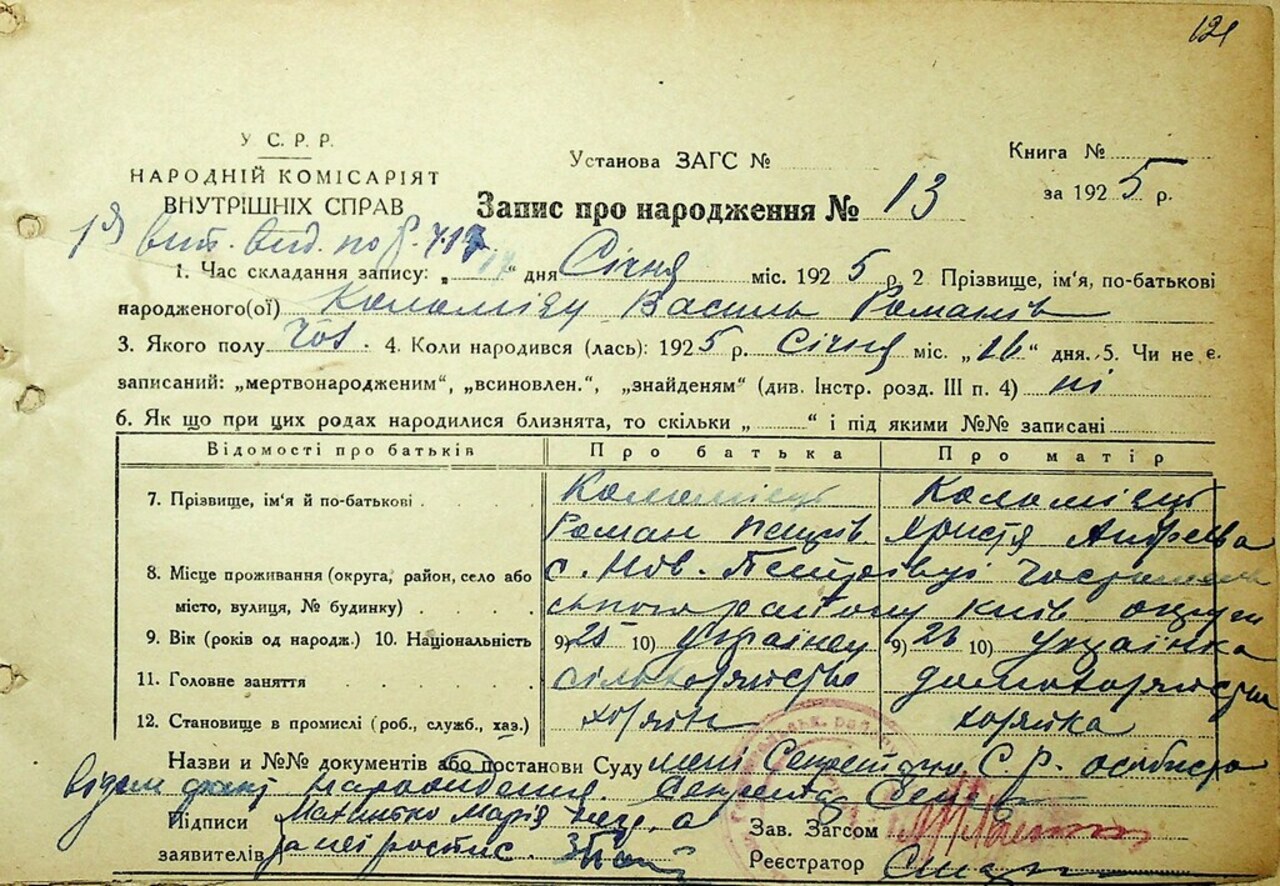 121
У. С. Р. Р.
НАРОДНІЙ КОМІСАРІЯТ
ВНУТРІШНІХ СПРАВ
Установа ЗАГС №
Книга №
за 1925 р.
Запис про народження № 13
1. Час складання запису: „ “ дня Січня міс. 1925 р. 2 Прізвище, ім‘я, по-батькові
народженого(ої) Коломієц Василь Романів
3. Якого полу чол. 4. Коли народився (лась): 1925 р. Січня міс. „16“ дня. 5. Чи не є
записаний: „мертвонародженим“, „всиновлен.“, „знайденям“ (див. Інстр. розд. III п. 4) ні
6. Як що при цих родах народилися близнята, то скільки „ “ і під якими №№ записані
Відомості про батьків Про батька Про матір
7. Прізвище, ім‘я й по-батькові Коломієць Коломієць
Роман Петрів Христя Андреєва
8. Місце проживання (округа, район, село або с. Нов. Петрівці Гостомель
місто, вулиця, № будинку) ського району Київ округи
9. Вік (років од народж.) 10. Національність 9) 25 10) Українец 9) 23 10) Українка
11. Головне заняття сільхазяйство домохазяйство
12. Становище в промислі (роб., служб., хаз.) хазяїн хазяйка
Назви и №№ документів або постанови Суду мені Секретарю С. Р. особисто
відом факт народження. Секретар
Підписи Марія
заявителів за неї розпис.
Зав. Загсом
Реєстратор